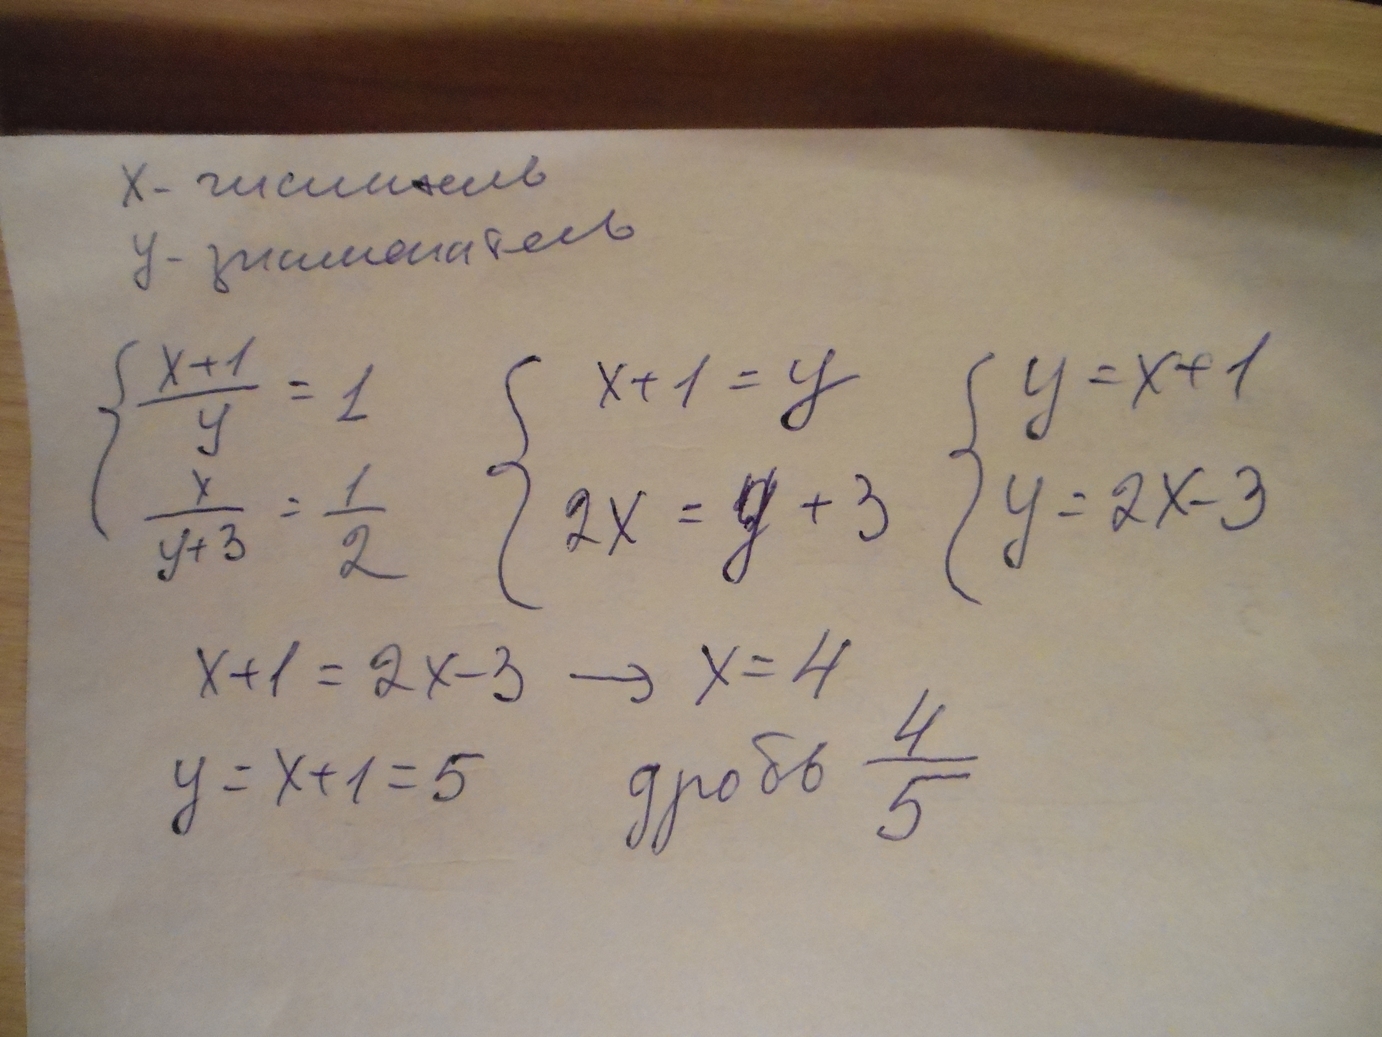 x - числитель
y - знаменатель
{ (x+1)/y = 1 { x+1 = y { y = x+1
x/(y+3) = 1/2 2x = y + 3 y = 2x-3
x+1 = 2x-3 → x=4
y = x+1 = 5 дробь 4/5